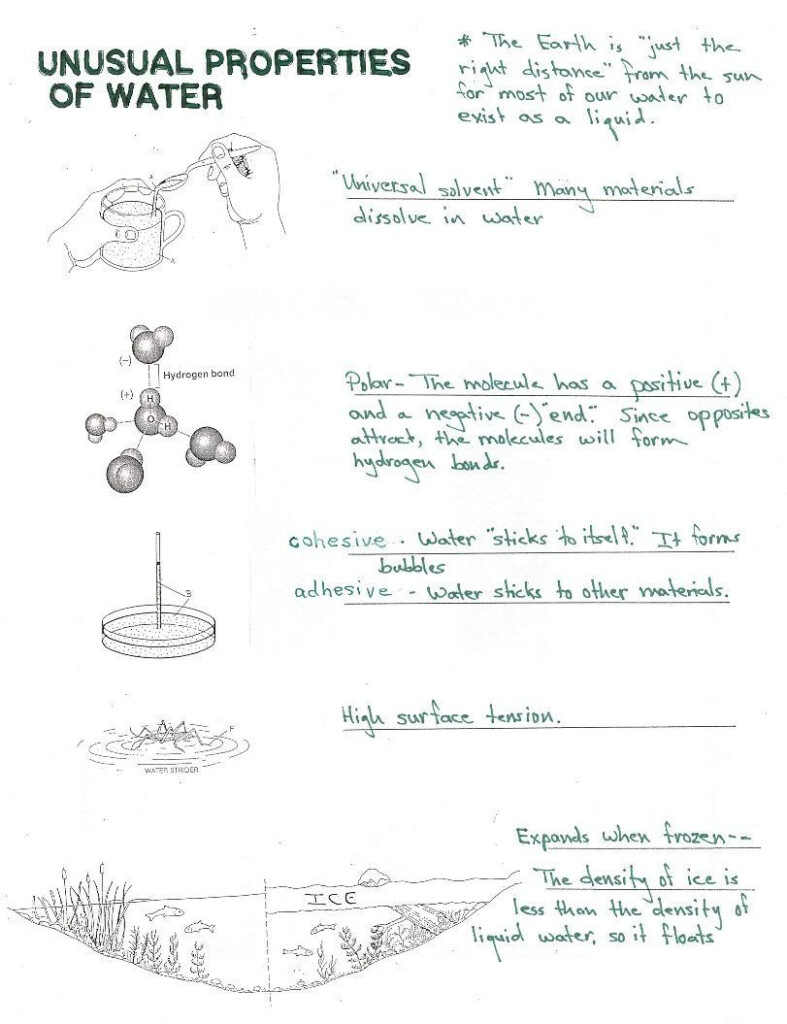 UNUSUAL PROPERTIES
OF WATER
* The Earth is "just the
right distance" from the sun
for most of our water to
exist as a liquid.
"Universal solvent" Many materials
dissolve in water
A
(-)
Hydrogen bond
(+)
H
O
H
Polar- The molecule has a positive (+)
and a negative (-) "end." Since opposites
attract, the molecules will form
hydrogen bonds.
cohesive. Water "sticks to itself." It forms
bubbles
adhesive - Water sticks to other materials.
B
High surface tension.
F
WATER STRIDER
Expands when frozen--
The density of ice is
less than the density of
liquid water, so it floats
ICE